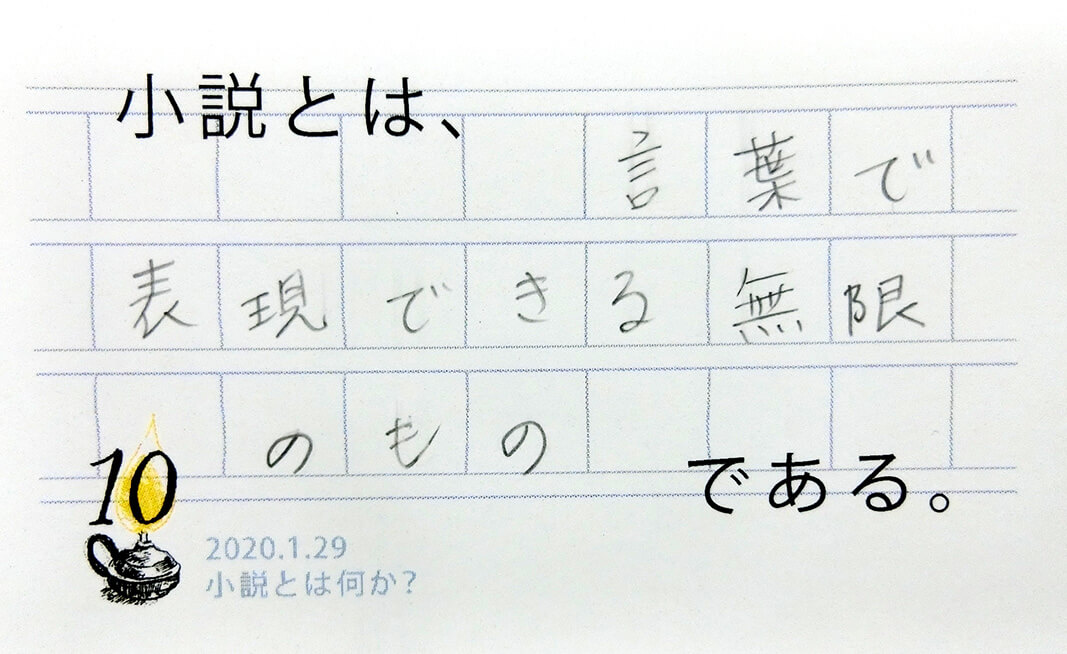 小説とは、
言葉で
表現できる無限
のもの
である。
10
2020.1.29
小説とは何か?